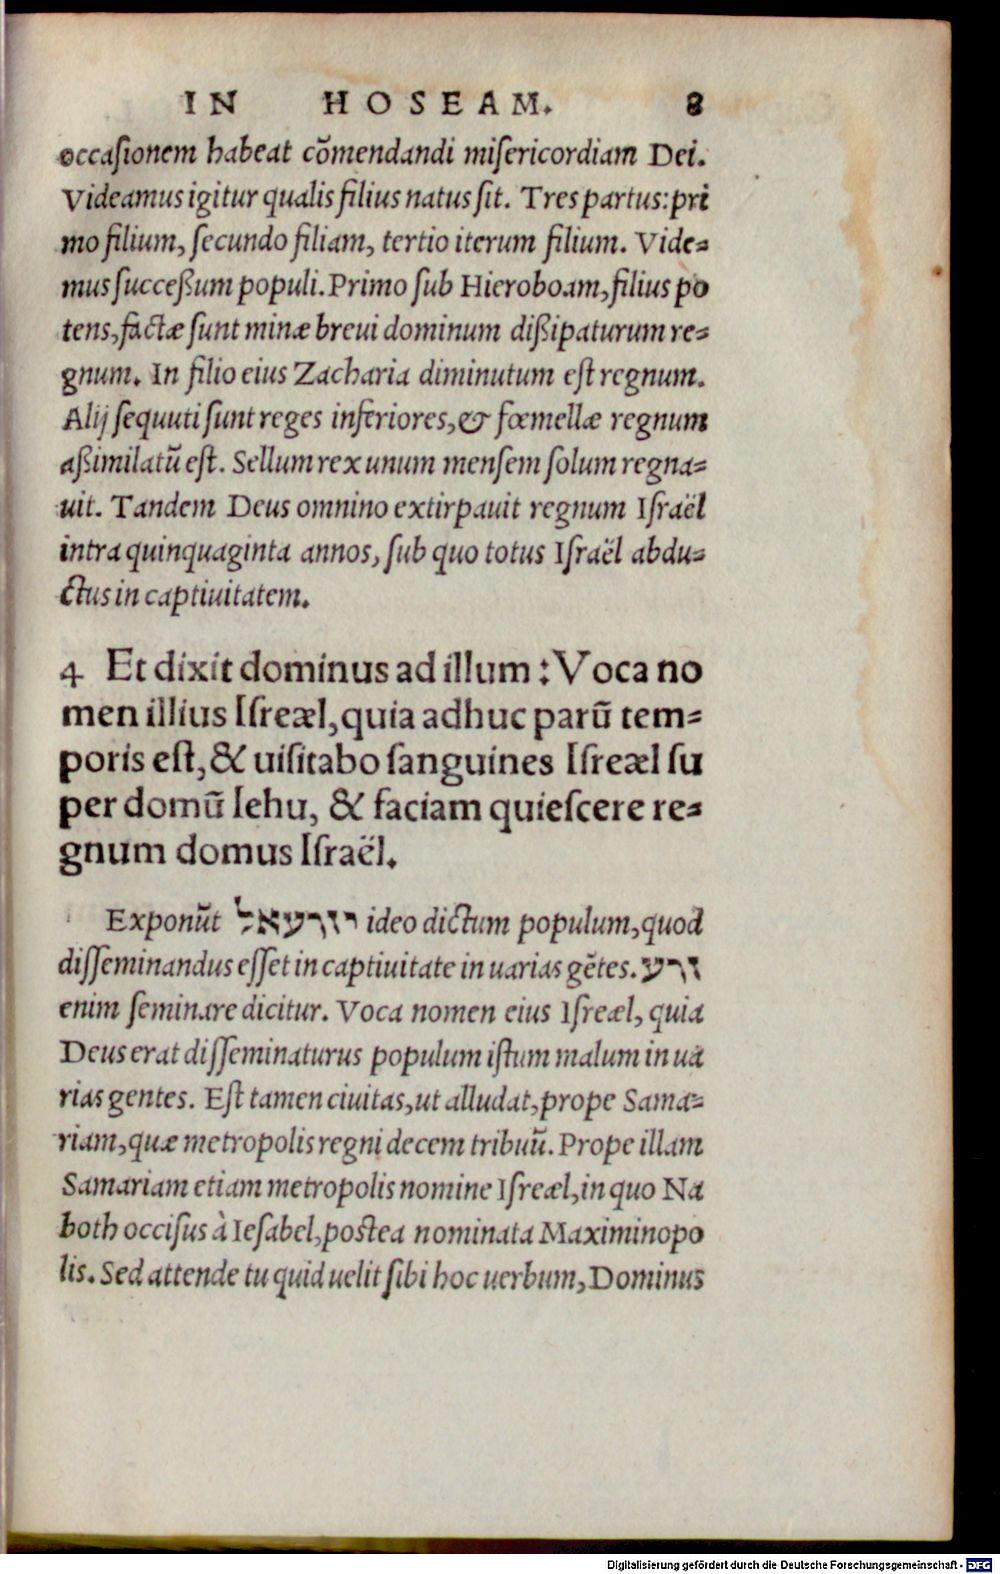 IN HOSEAM. 8
occaſionem habeat cõmendandi miſericordiam Dei.
Videamus igitur qualis filius natus ſit. Tres partus: pri
mo filium, ſecundo filiam, tertio iterum filium. Vide⸗
mus ſucceßum populi. Primo ſub Hieroboam, filius po
tens, factæ ſunt minæ breui dominum dißipaturum re⸗
gnum. In filio eius Zacharia diminutum eſt regnum.
Alij ſequuti ſunt reges inferiores, & fœmellæ regnum
aßimilatũ eſt. Sellum rex unum menſem ſolum regna⸗
uit. Tandem Deus omnino extirpauit regnum Iſraël
intra quinquaginta annos, ſub quo totus Iſraël abdu⸗
ctus in captiuitatem.
4 Et dixit dominus ad illum : Voca no
men illius Iſreæl, quia adhuc parũ tem⸗
poris eſt, & uiſitabo ſanguines Iſreæl ſu
per domũ Iehu, & faciam quieſcere re⸗
gnum domus Iſraël.
Exponũt יזרעאל ideo dictum populum, quod
diſſeminandus eſſet in captiuitate in uarias gẽtes. זרע
enim ſeminare dicitur. Voca nomen eius Iſreæl, quia
Deus erat diſſeminaturus populum iſtum malum in ua
rias gentes. Eſt tamen ciuitas, ut alludat, prope Sama⸗
riam, quæ metropolis regni decem tribuũ. Prope illam
Samariam etiam metropolis nomine Iſreæl, in quo Na
both occiſus à Ieſabel, postea nominata Maximinopo
lis. Sed attende tu quid uelit ſibi hoc uerbum, Dominus
Digitalisierung gefördert durch die Deutsche Forschungsgemeinschaft - DFG